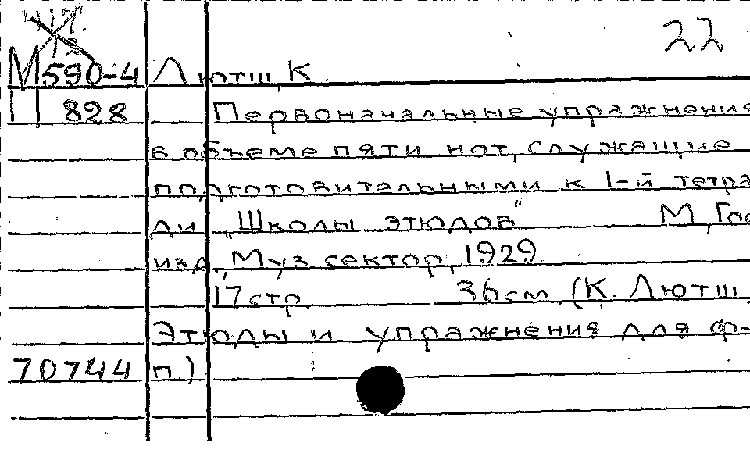 22
М590-4 Лютш, К
П 828 Первоначальные упражнения
в объеме пяти нот, служащие
подготовительными к 1-й тетра
ди "Школы этюдов" М, Гос
изд, Муз сектор, 1929
17 стр. 36 см (К. Лютш.
Этюды и упражнения для ф-
70744 п)